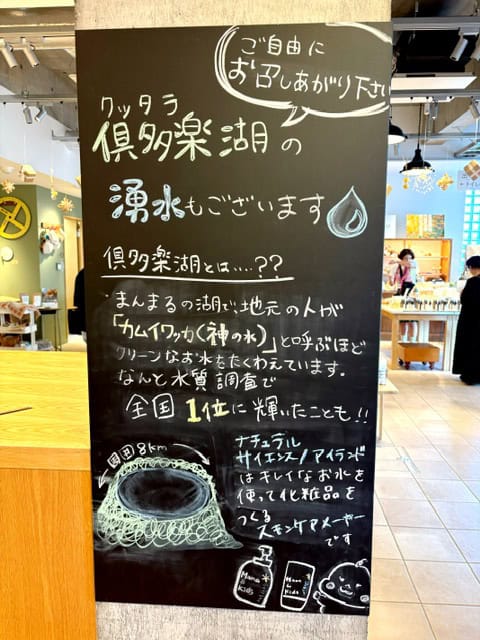 ご自由に
お召しあがり下さい
クッタラ
倶多楽湖の
湧水もございます
倶多楽湖とは....??
まんまるの湖で、地元の人が
「カムイワッカ(神の水)」と呼ぶほど
クリーンなお水をたくわえています。
なんと水質調査で
全国1位に輝いたことも!!
周囲8km
ナチュラル
サイエンス/アイランド
はキレイなお水を
使って化粧品を
つくる
スキンケアメーカー
です
Mama
&
Kids
Mama
&
Kids